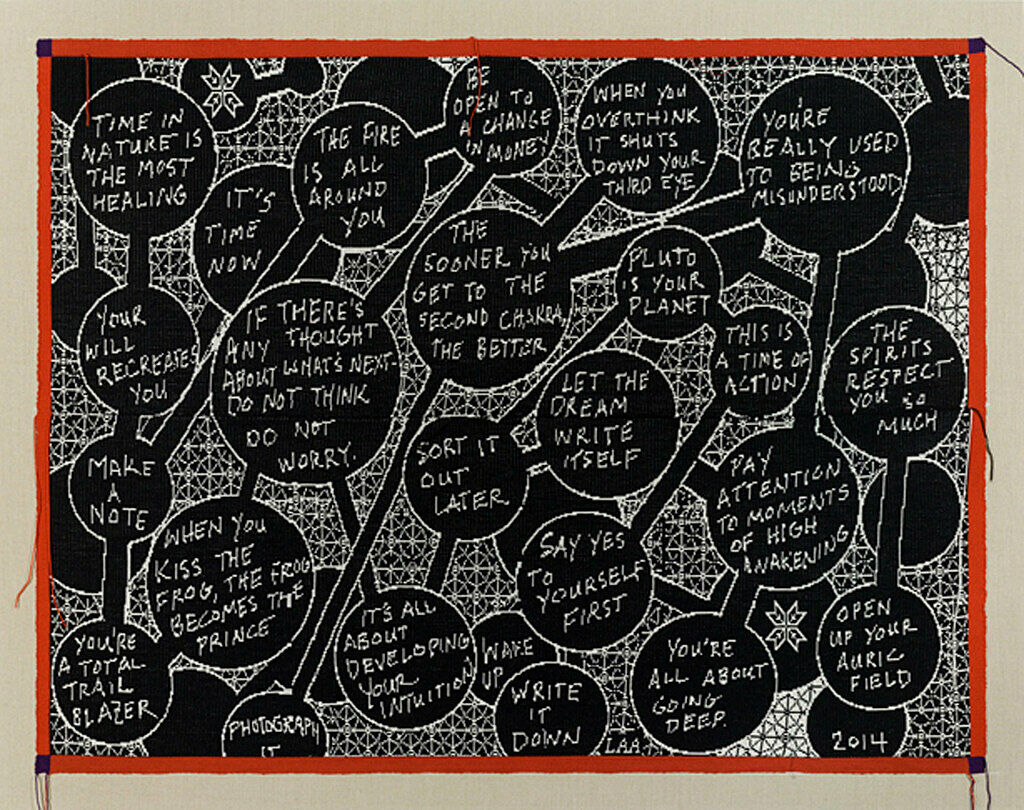 TIME IN
NATURE IS
THE MOST
HEALING
IT'S
TIME
NOW
THE FIRE
IS ALL
AROUND
YOU
BE
OPEN TO
A CHANGE
IN MONEY
WHEN YOU
OVERTHINK
IT SHUTS
DOWN YOUR
THIRD EYE
YOU'RE
REALLY USED
TO BEING
MISUNDERSTOOD
YOUR
WILL
RECREATES
YOU
IF THERE'S
ANY THOUGHT
ABOUT WHAT'S NEXT-
DO NOT THINK
DO NOT
WORRY.
THE
SOONER YOU
GET TO THE
SECOND CHAKRA
THE BETTER
PLUTO
IS YOUR
PLANET
THIS IS
A TIME OF
ACTION
THE
SPIRITS
RESPECT
YOU SO
MUCH
MAKE
A
NOTE
SORT IT
OUT
LATER
LET THE
DREAM
WRITE
ITSELF
PAY
ATTENTION
TO MOMENTS
OF HIGH
AWAKENING
WHEN YOU
KISS THE
FROG, THE FROG
BECOMES THE
PRINCE
SAY YES
TO
YOURSELF
FIRST
YOU'RE
A TOTAL
TRAIL
BLAZER
PHOTOGRAPH
IT
IT'S ALL
ABOUT
DEVELOPING
YOUR
INTUITION
WAKE
UP
WRITE
IT
DOWN
YOU'RE
ALL ABOUT
GOING
DEEP.
OPEN
UP YOUR
AURIC
FIELD
LAA
2014